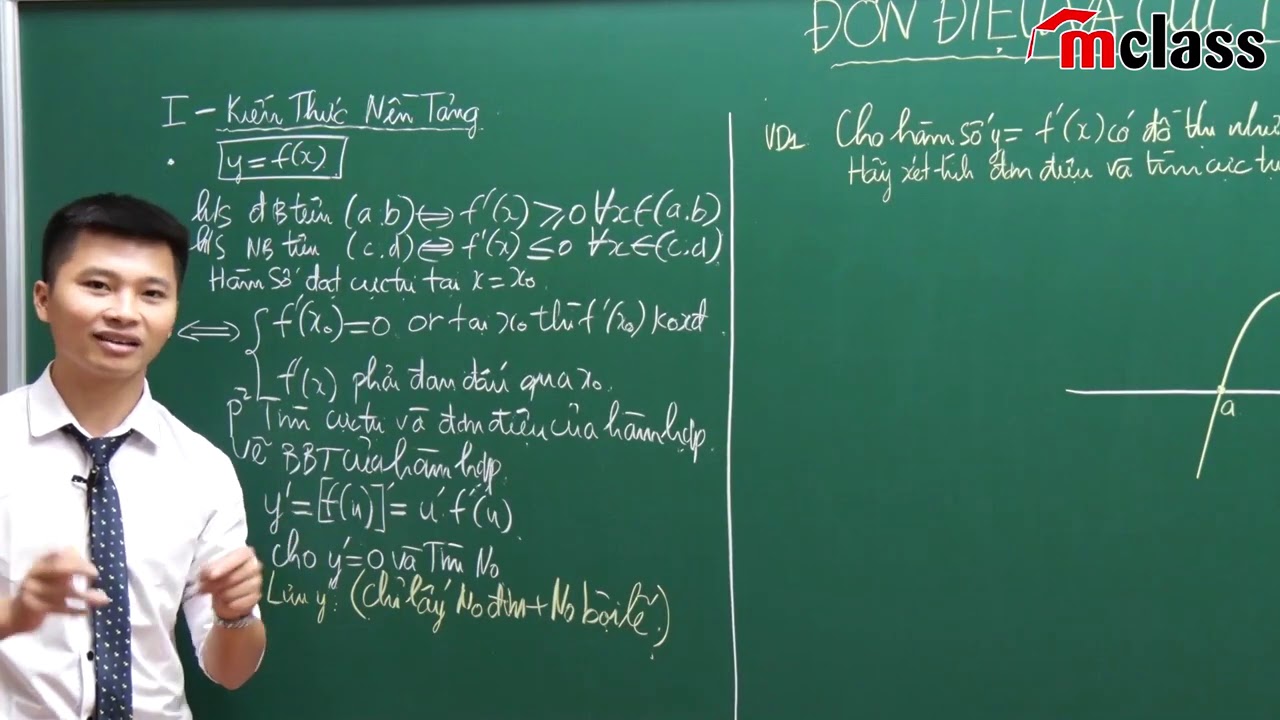 ĐƠN ĐIỆU VÀ CỰC
mclass
I - Kiến Thức Nền Tảng
• y = f(x)
h/s ĐB trên (a.b) ⇔ f'(x) ≥ 0 ∀x ∈ (a.b)
h/s NB trên (c.d) ⇔ f'(x) ≤ 0 ∀x ∈ (c.d)
Hàm số đạt cực trị tại x = x₀
⇔ { f'(x₀) = 0 or tại x₀ thì f'(x₀) koxđ
f'(x) phải đan dấu qua x₀.
p² Tìm cực trị và đơn điệu của hàm hợp.
Vẽ BBT của hàm hợp.
y' = [f(u)]' = u'.f'(u)
cho y' = 0 và Tìm N₀
Lưu ý: (chỉ lấy N₀ đơn + N₀ bội lẻ)
VD1 Cho hàm số y = f'(x) có đồ thị như
Hãy xét tính đơn điệu và tìm cực
a